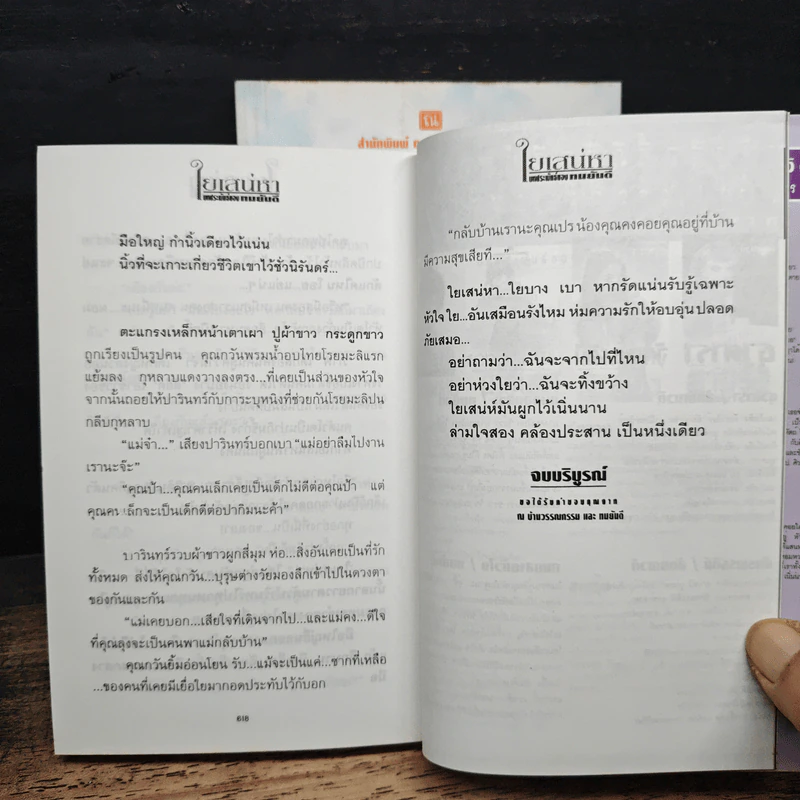 ณ
สำนักพิมพ์ ณ
ใยเสน่หา
ทมยันตี
มือใหญ่ กำนิ้วเดียวไว้แน่น
นิ้วที่จะเกาะเกี่ยวชีวิตเขาไว้ชั่วนิรันดร์...
ตะแกรงเหล็กหน้าเตาเผา ปูผ้าขาว กระดูกขาว
ถูกเรียงเป็นรูปคน คุณกวินพรมน้ำอบไทยโรยมะลิแรก
แย้มลง กุหลาบแดงวางลงตรง...ที่เคยเป็นส่วนของหัวใจ
จากนั้นถอยให้ปารินทร์กับการะบุหนิงที่ช่วยกันโรยมะลิปน
กลีบกุหลาบ
“แม่จ๋า...” เสียงปารินทร์บอกเบา “แม่อย่าลืมไปงาน
เรานะจ๊ะ”
“คุณป้า...คุณคนเล็กเคยเป็นเด็กไม่ดีต่อคุณป้า แต่
คุณคนเล็กจะเป็นเด็กดีต่อปากิมนะค้า”
ปารินทร์รวบผ้าขาวผูกสี่มุม ห่อ...สิ่งอันเคยเป็นที่รัก
ทั้งหมด ส่งให้คุณกวิน...บุรุษต่างวัยมองลึกเข้าไปในดวงตา
ของกันและกัน
“แม่เคยบอก...เสียใจที่เดินจากไป...และแม่คง...ดีใจ
ที่คุณลุงจะเป็นคนพาแม่กลับบ้าน”
คุณกวินยิ้มอ่อนโยน รับ...แม้จะเป็นแค่...ซากที่เหลือ
...ของคนที่เคยมีเยื่อใยมากอดประทับไว้กับอก
616
ใยเสน่หา
ทมยันตี
“กลับบ้านเรานะคุณเปร น้องคุณคงคอยคุณอยู่ที่บ้าน
มีความสุขเสียที...”
ใยเสน่หา...ใยบาง เบา หากรัดแน่นรับรู้เฉพาะ
หัวใจ ใย...อันเสมือนรังไหม ห่มความรักให้อบอุ่นปลอด
ภัยเสมอ...
อย่าถามว่า...ฉันจะจากไปที่ไหน
อย่าห่วงใยว่า...ฉันจะทิ้งขว้าง
ใยเสน่ห์มันผูกไว้เนิ่นนาน
ล่ามใจสอง คล้องประสาน เป็นหนึ่งเดียว
จบบริบูรณ์
ขอได้รับคำขอบคุณจาก
ณ บ้านวรรณกรรม และ ทมยันตี